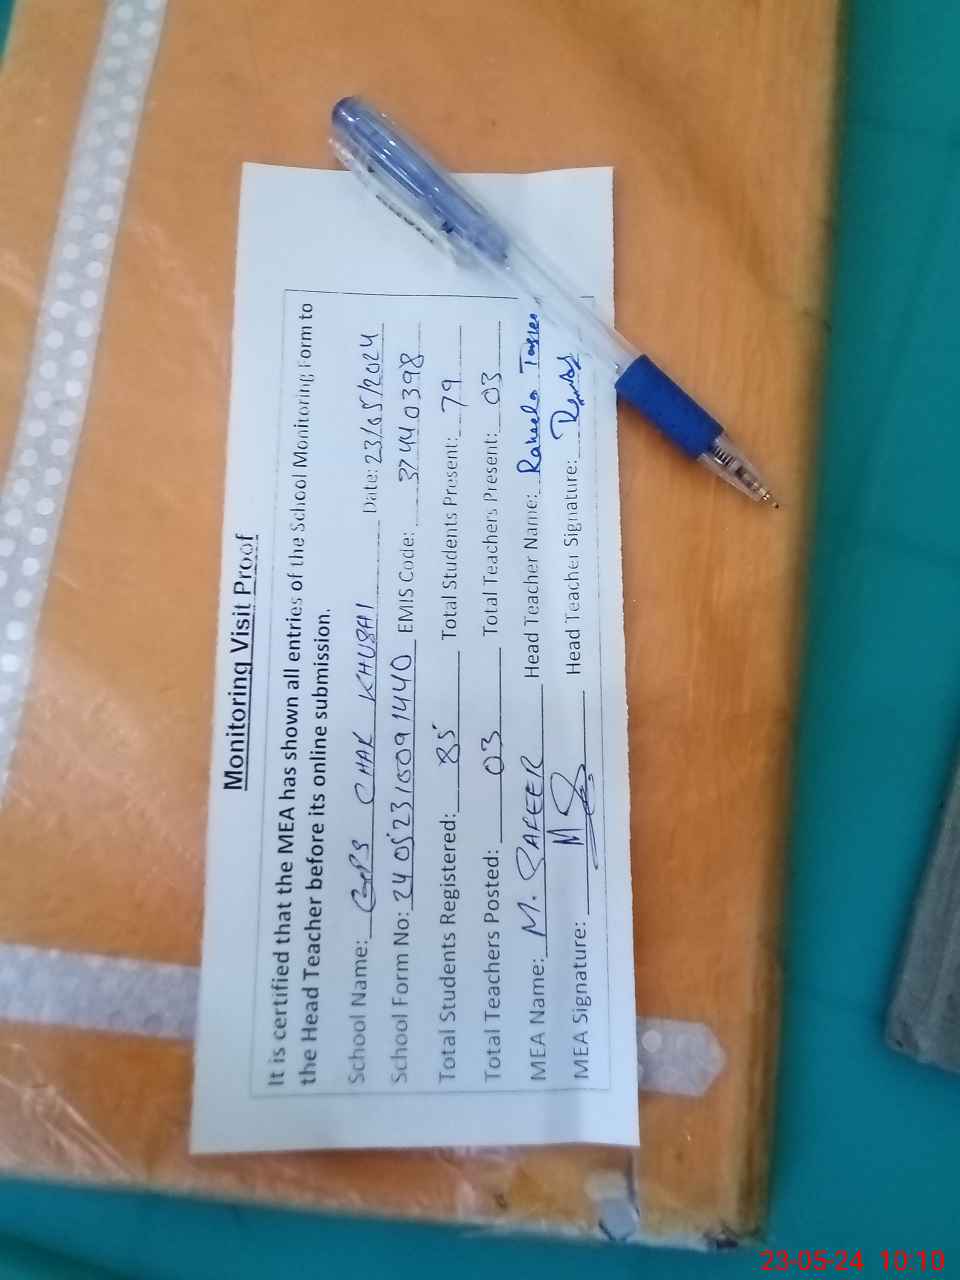 Monitoring Visit Proof
It is certified that the MEA has shown all entries of the School Monitoring Form to
the Head Teacher before its online submission.
School Name: GGPS CHAK KHUSHI Date: 23/05/2024
School Form No: 24052315091440 EMIS Code: 37440398
Total Students Registered: 85 Total Students Present: 79
Total Teachers Posted: 03 Total Teachers Present: 03
MEA Name: M. SAFEER Head Teacher Name: Raheela
MEA Signature: Head Teacher Signature:
23-05-24 10:10